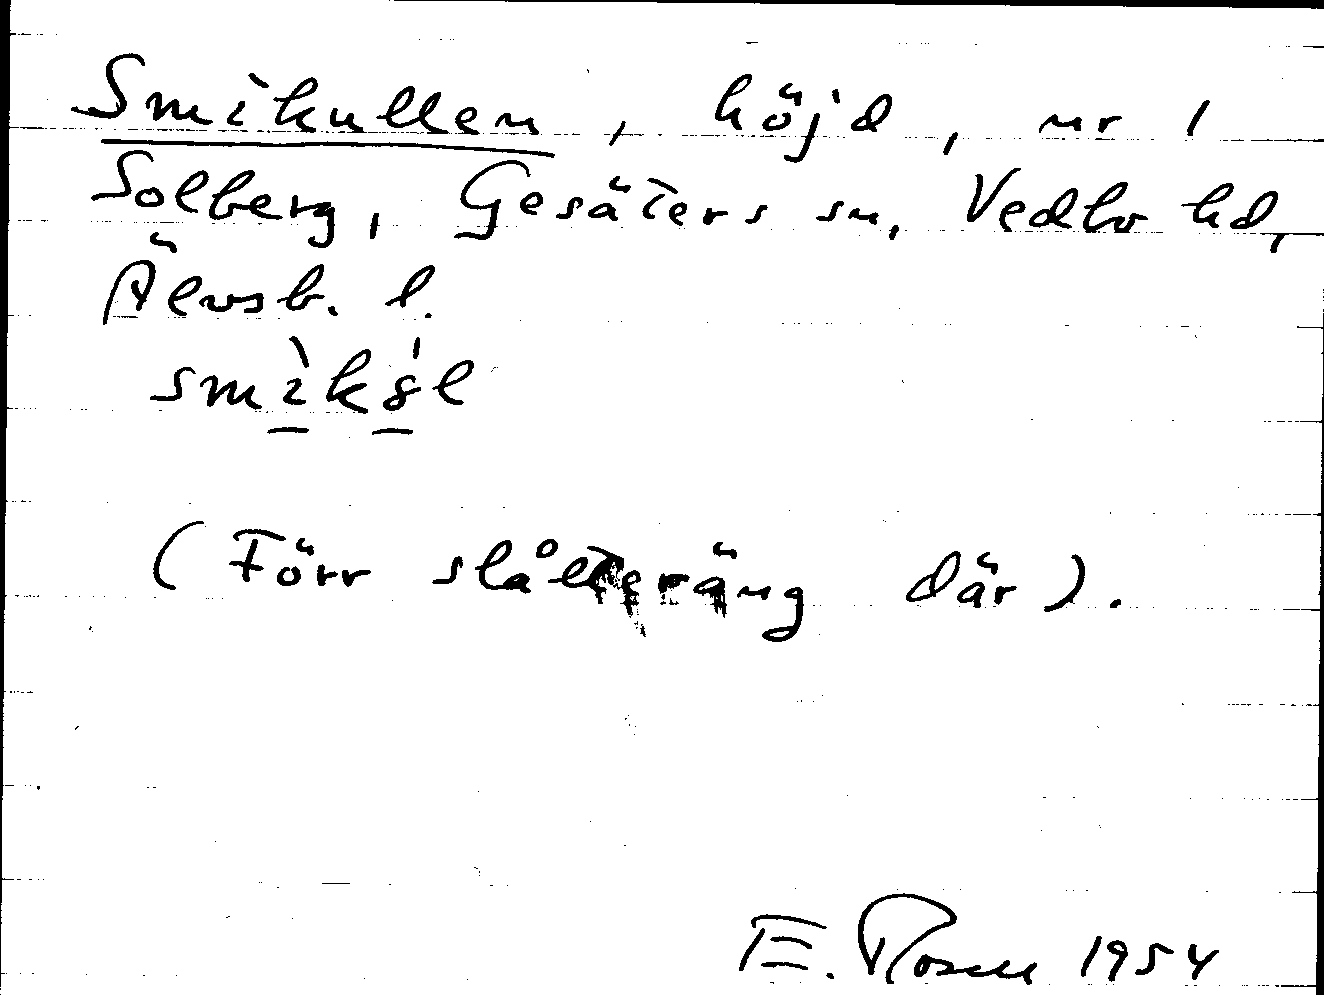 Smikullen, höjd, nr 1
Solberg, Gesäters sn, Vedbo hd,
Älvsb. l.
(Förr slåtteräng där).
E. Rosell 1954